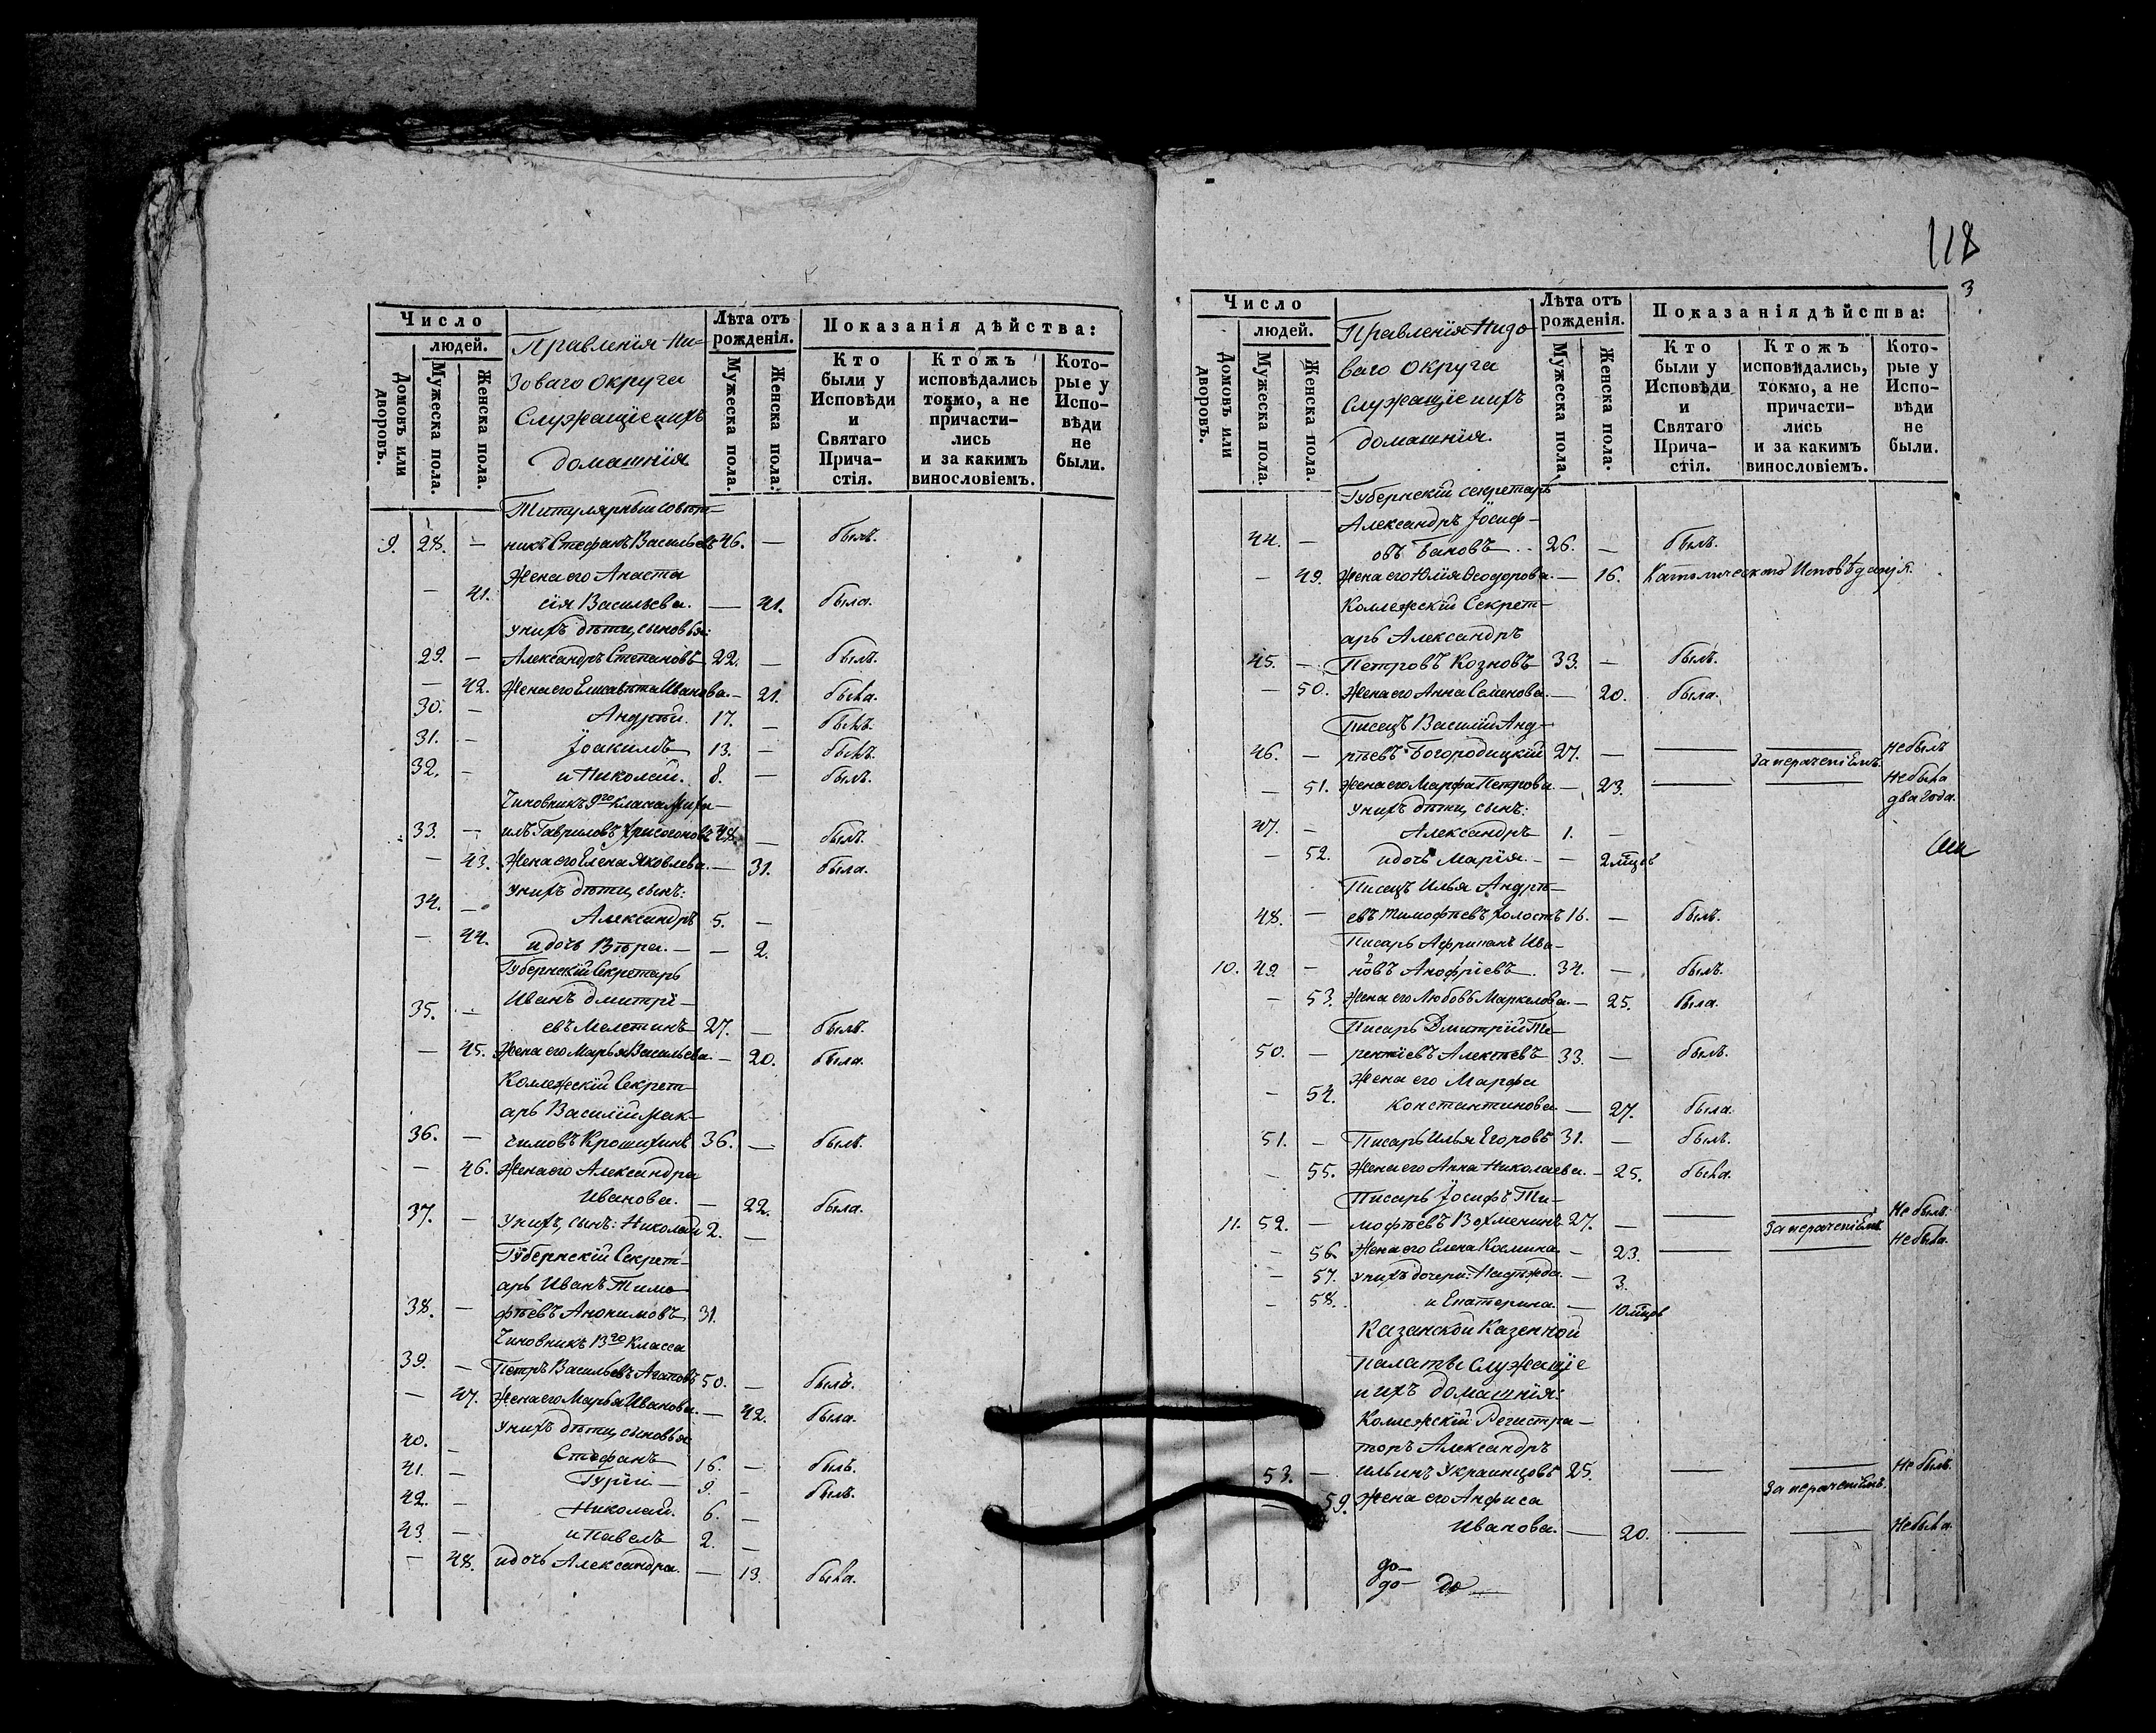 Число
людей.
Домовъ или дворовъ.
Мужеска пола.
Женска пола.
Правленія Ни-
зоваго округа
Служащіе ихъ
домашнія
Лѣта отъ
рожденія.
Мужеска пола.
Женска пола.
Показанія дѣйства:
Кто были у Исповѣди и Святаго Прича- стія.
Ктожъ исповѣдались токмо, а не причасти- лись и за какимъ винословіемъ.
Кото- рые у Испо- вѣди не были.
Титулярный совѣт-
9. 28. — никъ Стефанъ Васильевъ 46. — былъ.
Жена его Анаста
— 41. сія Васильева. — 41. была.
У нихъ дѣти, сыновья:
29. — Александръ Степановъ 22. — былъ.
— 42. Жена его Елисавета Иванова. — 21. была.
30. — Андрей. 17. — былъ.
31. — Іоакимъ 13. — былъ.
32. — и Николай. 8. — былъ.
Чиновникъ 9го класа Миха-
33. — илъ Гавриловъ Хрисогоновъ 48. — былъ.
— 43. Жена его Елена Яковлева. — 31. была.
У нихъ дѣти, сынъ:
34. — Александръ 5. —
— 44. и дочь Вѣра. — — 2.
Губернскій Секретарь
Иванъ Дмитрі-
35. — евъ Мелетинъ 27. — былъ.
— 45. Жена его Марья Васильева. — 20. была.
Коллежскій Секрет-
арь Василій Мак-
36. — симовъ Крошихинъ 36. — былъ.
— 46. Жена его Александра
Иванова. — 22. была.
37. — У нихъ, сынъ: Николай 2. —
Губернскій Секрет-
арь Иванъ Тимо
38. — фѣевъ Анонимовъ 31.
Чиновникъ 13го Класса
39. — Петръ Васильевъ Агаповъ 50. — былъ.
— 47. Жена его Марья Иванова. — 42. была.
У нихъ дѣти, сыновья:
40. — Стефанъ 16. — былъ.
41. — Гурій. — 9. — былъ.
42. — Николай. 6. —
43. — и Павелъ 2. —
— 48. и дочь Александра. — 13. была.
118
3
Число
людей.
Домовъ или дворовъ.
Мужеска пола.
Женска пола.
Правленія Низо-
ваго округа
Служащіе ихъ
домашнія.
Лѣта отъ
рожденія.
Мужеска пола.
Женска пола.
Показанія дѣйства:
Кто были у Исповѣди и Святаго Прича- стія.
Ктожъ исповѣдались, токмо, а не причасти- лись и за какимъ винословіемъ.
Кото- рые у Испо- вѣди не были.
Губернскій секретарь
Александръ Іосиф-
44. — овъ Бановъ 26. — былъ.
— 49. Жена его Юлія Ѳеодорова. — 16. Католическаго Исповѣданія.
Коллежскій Секрет-
арь Александръ
45. — Петровъ Козновъ 33. — былъ.
— 50. Жена его Анна Семенова. — 20. была.
Писецъ Василій Анд-
46. — рѣевъ Богородицкій 27. — — — не былъ
за нераченіемъ.
— 51. Жена его Марфа Петрова. — 23. — — не была
два года.
У нихъ дѣти, сынъ:
47. — Александръ 1. —
— 52. и дочь Марія. — — 2 мѣсцовъ
Писецъ Илья Андрѣ-
48. — евъ Тимофѣевъ холостъ 16. — былъ.
Писарь Африканъ Ива-
10. 49. — новъ Анофріевъ. 34. — былъ.
— 53. Жена его Любовь Маркелова. — 25. была.
Писарь Дмитрій Те-
50. — рентіевъ Алексѣевъ 33. — былъ.
Жена его Марфа
— 54. Константинова. — 27. была.
51. — Писарь Илья Егоровъ 31. — былъ.
— 55. Жена его Анна Николаева. — 25. была.
Писарь Іосифъ Ти-
11. 52. — мофѣевъ Вохменинъ 27. — — — Не былъ.
за нераченіемъ
— 56. Жена его Елена Космина. — 23. — — Не была.
— 57. у нихъ дочери: Надѣжда. — 3.
— 58. и Екатерина. — 10 мѣсцовъ
Казанской Казенной
палаты Служащіе
и ихъ домашнія:
Коллежскій Регистра-
торъ Александръ
53. — Ильинъ Украинцовъ 25. — — Не былъ.
за нераченіемъ.
— 59. Жена его Анфиса
Иванова. — 20. — — Не была.
до-
до- до